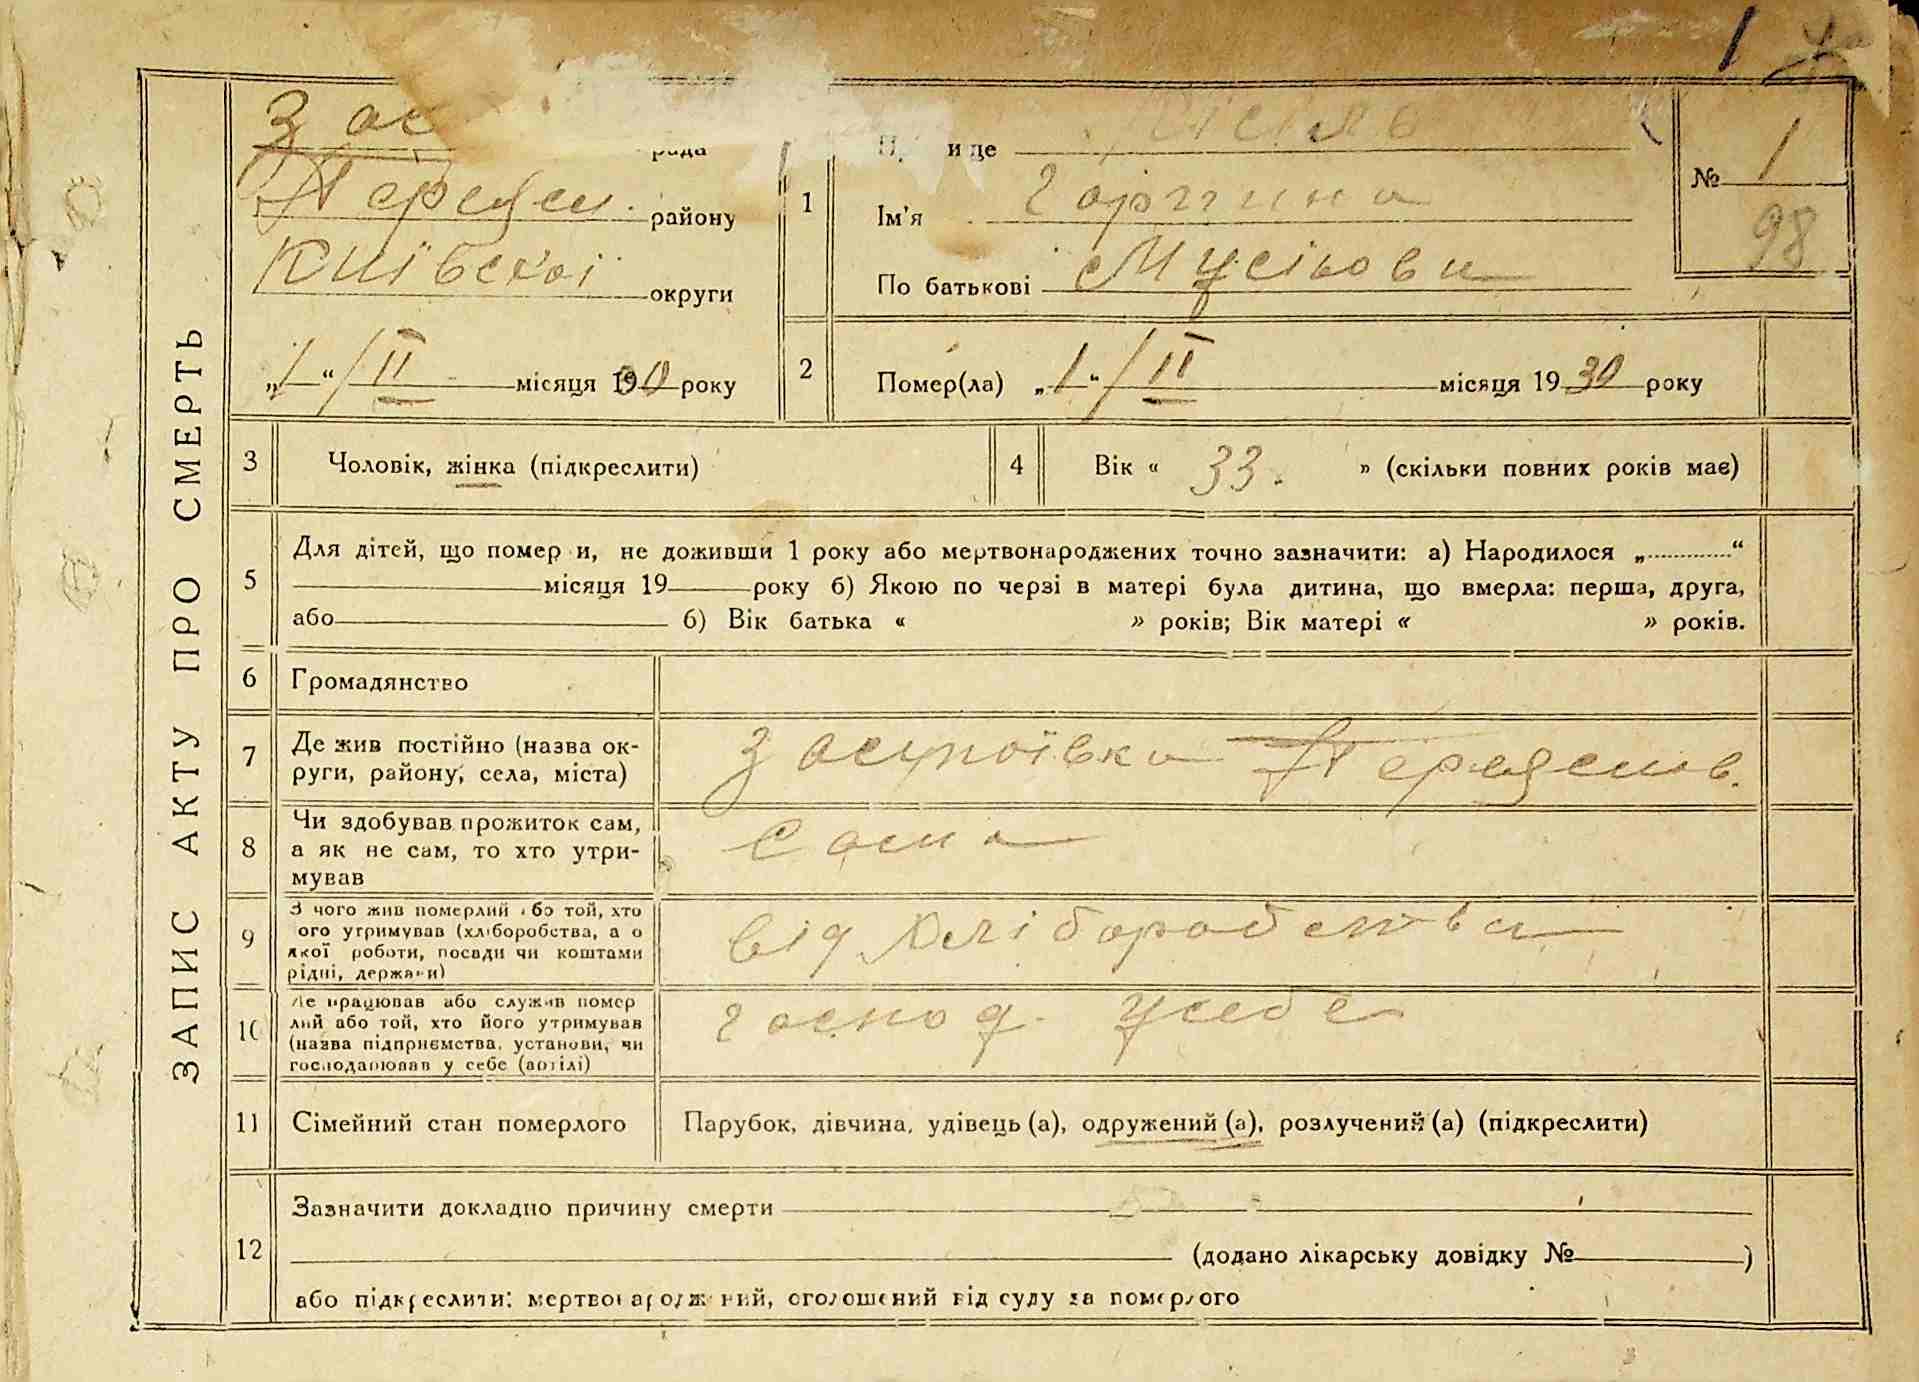 1
ЗАПИС АКТУ ПРО СМЕРТЬ
рада
Переяс. району
Київської округи
„1“/II місяця 1930 року
1
Ім'я Горпина
По батькові Мусіовн
№ 1
98
2
Помер(ла) „1“/II місяця 1930 року
3 Чоловік, жінка (підкреслити)
4 Вік « 33. » (скільки повних років має)
5
Для дітей, що померли, не доживши 1 року або мертвонароджених точно зазначити: а) Народилося „ “
місяця 19 року б) Якою по черзі в матері була дитина, що вмерла: перша, друга,
або б) Вік батька « » років; Вік матері « » років.
6 Громадянство
7 Де жив постійно (назва ок-
руги, району, села, міста)
Заструївка Переяслів.
8 Чи здобував прожиток сам,
а як не сам, то хто утри-
мував
Сама
9 З чого жив померлий або той, хто
його утримував (хліборобства, а о
якої роботи, посади чи коштами
рідні, держави)
від хліборобства
10 Де працював або служив помер
лий або той, хто його утримував
(назва підприємства, установи, чи
господарював у себе (артілі)
господ. усебе
11 Сімейний стан померлого
Парубок, дівчина, удівець (а), одружений (а), розлучений (а) (підкреслити)
12
Зазначити докладно причину смерти
(додано лікарську довідку № )
або підкреслити: мертвонароджений, оголошений від суду за померлого